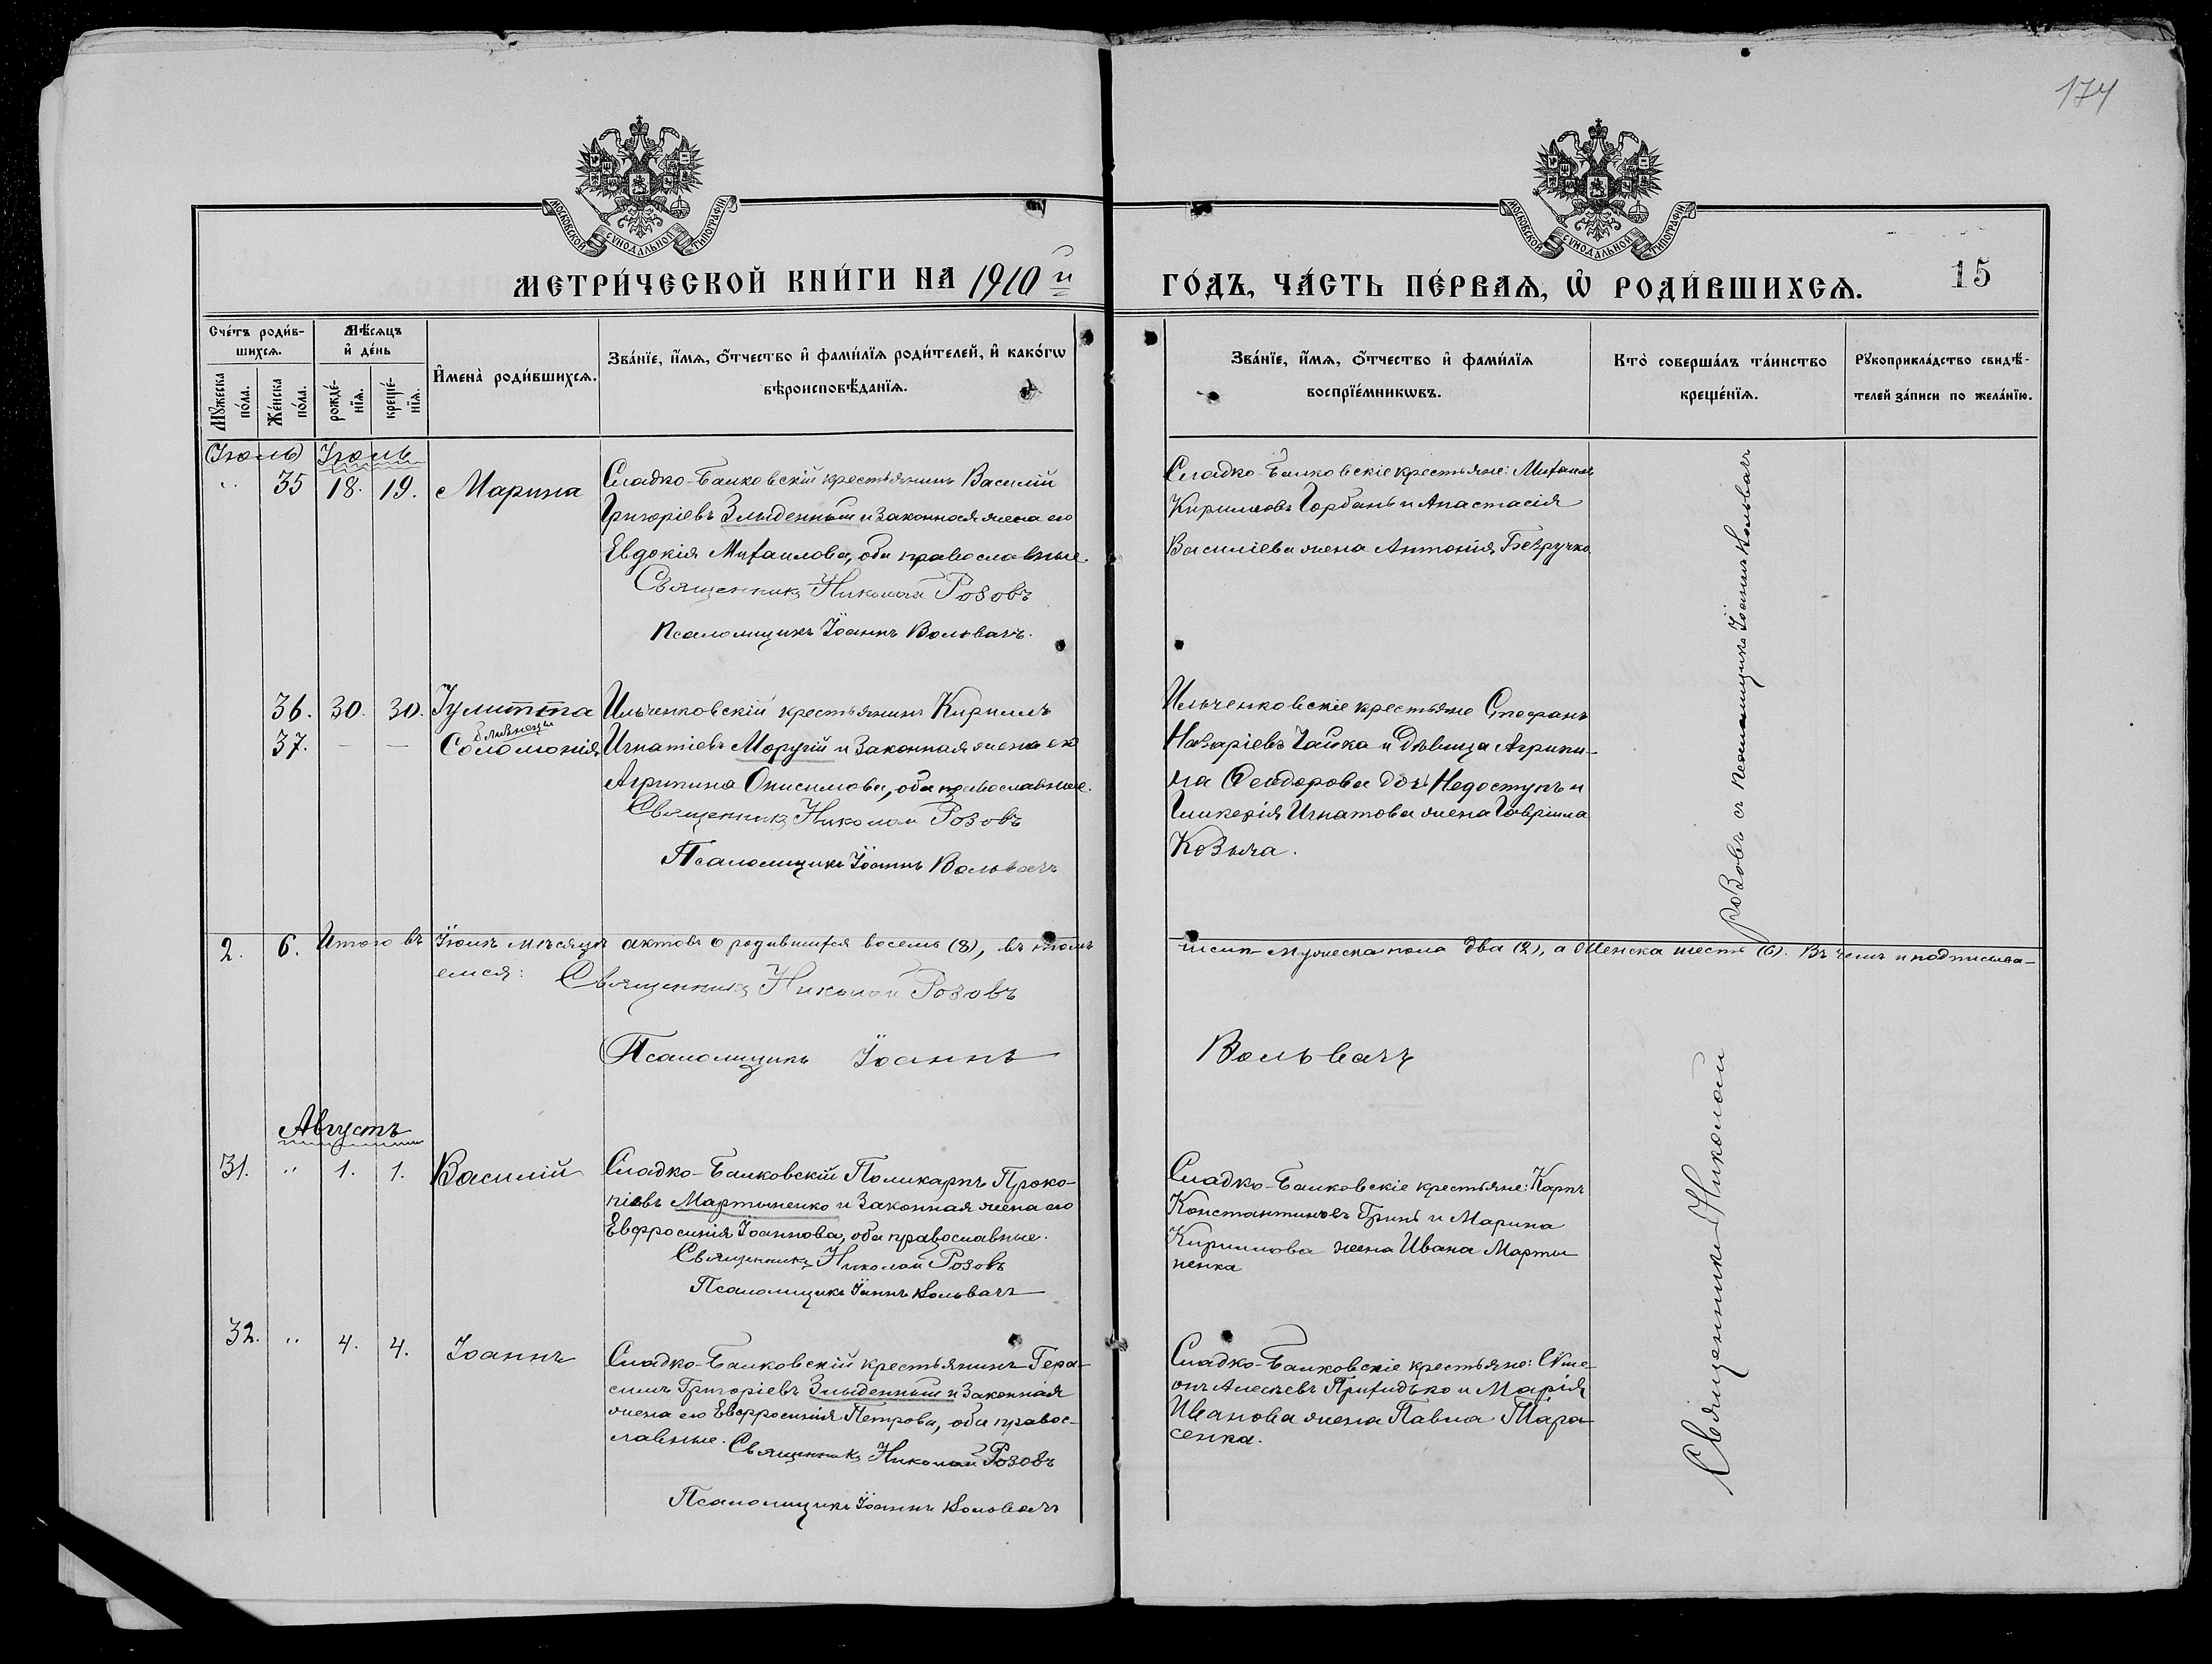 174
МОСКОВСКОЙ СУНОДАЛЬНОЙ ТИПОГРАФІИ
МОСКОВСКОЙ СУНОДАЛЬНОЙ ТИПОГРАФІИ
МЕТРИ́ЧЕСКОЙ КНИ́ГИ НА 1910 й
ГО́ДЪ, ЧА́СТЬ ПЕ́РВАѦ, Ѡ҆ РОДИ́ВШИХСѦ.
15
Сче́тъ роди́в-
шихсѧ.
Мꙋ́жеска по́ла.
Же́нска по́ла.
Мѣ́сѧцъ
и҆ де́нь
рожде́-
нїѧ.
креще́-
нїѧ.
И҆мена̀ роди́вшихсѧ.
Зва́нїе, и҆́мѧ, ѻ҆́тчество и҆ фами́лїѧ роди́телей, и҆ како́гѡ
вѣроисповѣ́данїѧ.
Зва́нїе, и҆́мѧ, ѻ҆́тчество и҆ фами́лїѧ
воспрїе́мникѡвъ.
Кто̀ соверша́лъ та́инство
креще́нїѧ.
Рꙋкоприкла́дство свидѣ́-
телей за́писи по жела́нїю.
Іюль Іюль
" 35 18. 19. Марина
Сладко-Балковскій крестьянинъ Василій
Григоріевъ Злыденный и законная жена его
Евдокія Михаилова, оба православные
Священникъ Николай Розовъ
Псаломщикъ Іоаннъ Вольвачъ.
Сладко-Балковскіе крестьяне: Михаилъ
Кирилловъ Горбань и Анастасія
Василіева жена Антонія Безручко
36. 30. 30. Іулитта
близнецы
37. — — Соломонія
Ильченковскій крестьянинъ Кириллъ
Игнатіевъ Моругій и законная жена его
Агрипина Онисимова, оба православные.
Священникъ Николай Розовъ
Псаломщикъ Іоаннъ Вольвачъ
Ильченковскіе крестьяне Стефанъ
Назаріевъ Чайка и дѣвица Агрипи-
на Ѳеодорова дочь Недоступъ и
Гликерія Игнатова жена Гавріила
Козыла.
2. 6. Итого въ Іюлѣ мѣсяцѣ актовъ о родившихся восемь (8), въ томъ
числѣ мужеска пола два (2), а женска шесть (6). Въ чемъ и подписыва-
емся: Священникъ Николай Розовъ
Псаломщикъ Іоаннъ Вольвачъ
Августъ
31. " 1. 1. Василій
Сладко-Балковскій Поликарпъ Проко-
піевъ Мартыненко и законная жена его
Евфросинія Іоаннова, оба православные.
Священникъ Николай Розовъ
Псаломщикъ Іоаннъ Вольвачъ
Сладко-Балковскіе крестьяне: Карпъ
Константиновъ Гринь и Марина
Кириллова жена Ивана Марты
ненка
32. " 4. 4. Іоаннъ
Сладко-Балковскій крестьянинъ Гера-
симъ Григоріевъ Злыденный и законная
жена его Евфросинія Петрова, оба правос-
лавные. Священникъ Николай Розовъ
Псаломщикъ Іоаннъ Вольвачъ
Сладко-Балковскіе крестьяне: Сѵме-
онъ Алексѣевъ Прихидько и Марія
Иванова жена Павла Тара-
сенка.
Священникъ Николай Розовъ съ псаломщикомъ Іоанномъ Вольвачъ